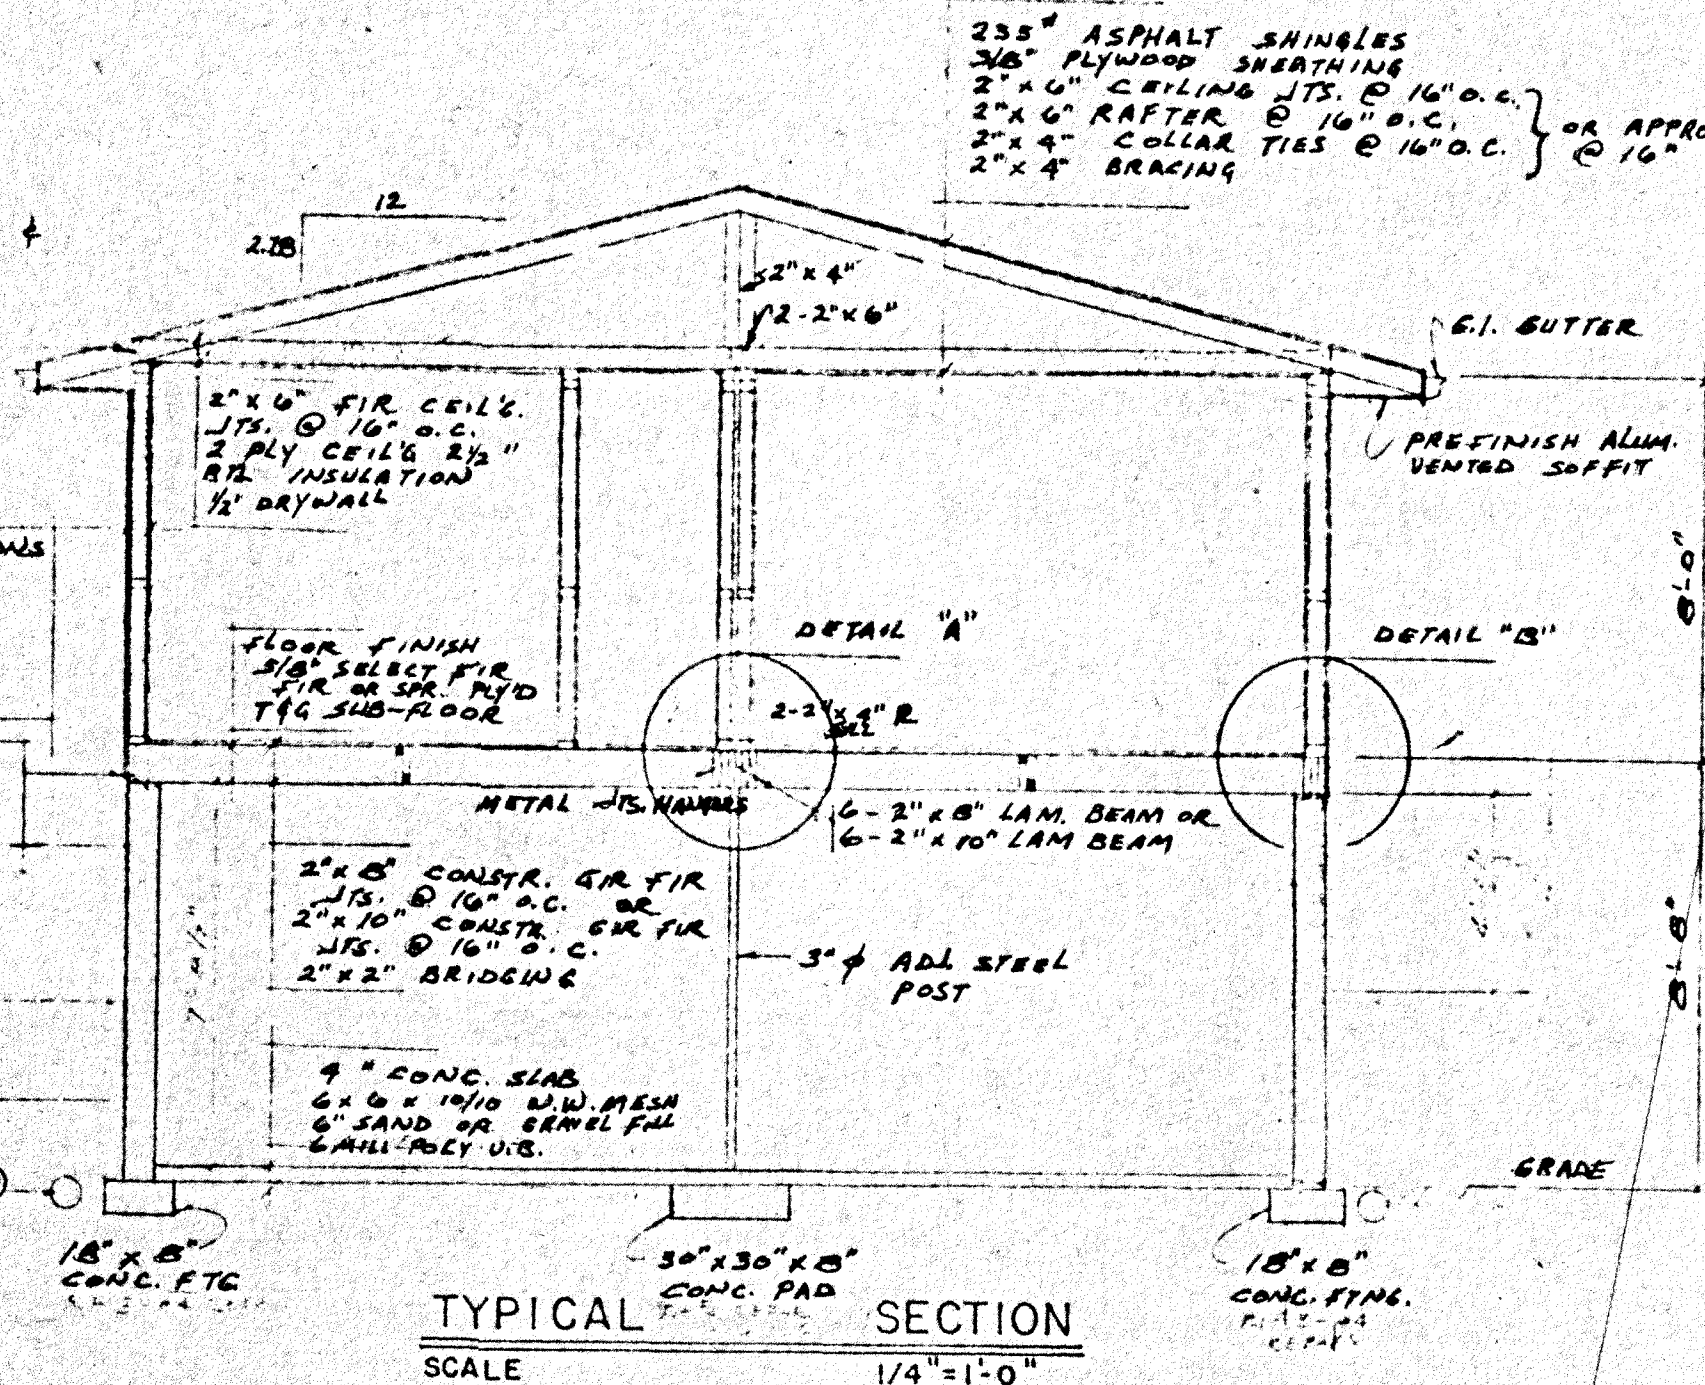 235# ASPHALT SHINGLES
3/8" PLYWOOD SHEATHING
2" x 6" CEILING JTS. @ 16" O.C.
2" x 6" RAFTER @ 16" O.C.
2" x 4" COLLAR TIES @ 16" O.C.
2" x 4" BRACING
OR APPRO
@ 16"
12
2.28
2" x 4"
2-2" x 6"
G.I. GUTTER
PREFINISH ALUM.
VENTED SOFFIT
2" x 6" FIR CEIL'G.
JTS. @ 16" O.C.
2 PLY CEIL'G 2½"
INSULATION
½" DRYWALL
8'-0"
FLOOR FINISH
5/8" SELECT FIR
FIR OR SPR. PLY'D
T&G SUB-FLOOR
DETAIL "A"
DETAIL "B"
2-2" x 4" R
METAL JTS. HANGERS
6-2" x 8" LAM. BEAM OR
6-2" x 10" LAM BEAM
2" x 8" CONSTR. GIR FIR
JTS. @ 16" O.C. OR
2" x 10" CONSTR. GIR FIR
JTS. @ 16" O.C.
2" x 2" BRIDGING
3" φ ADJ. STEEL
POST
8'-8"
4" CONC. SLAB
6 x 6 x 10/10 W.W. MESH
6" SAND OR GRAVEL FILL
6 MILL POLY V.B.
GRADE
18" x 8"
CONC. FTG
30" x 30" x 8"
CONC. PAD
18" x 8"
CONC. FTNG.
TYPICAL SECTION
SCALE 1/4"=1'-0"